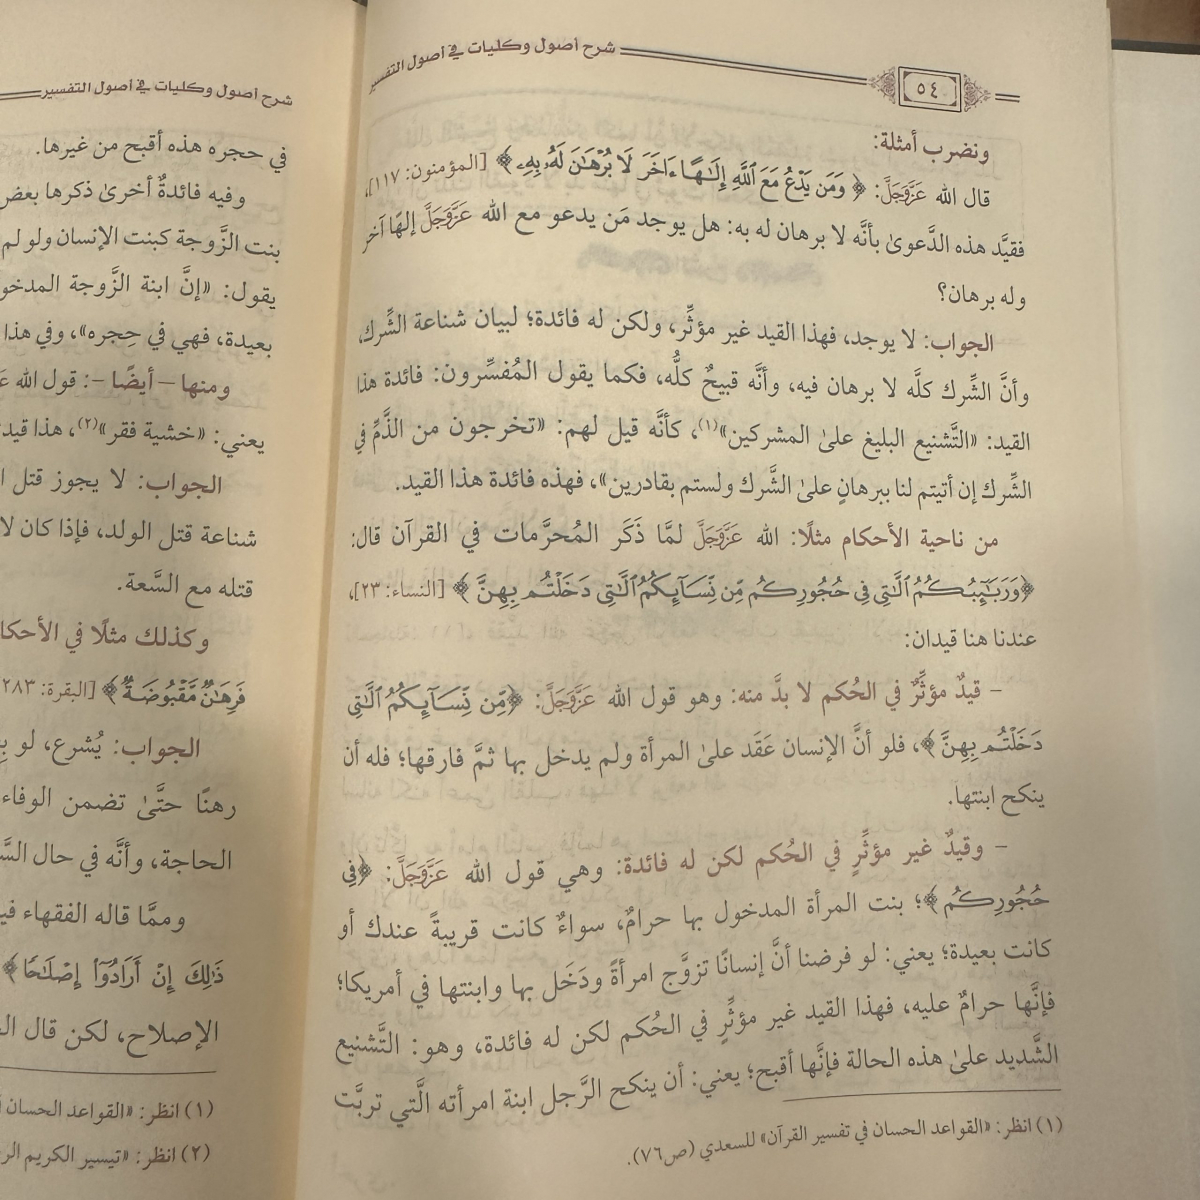 شرح أصول وكليات في أصول التفسير
٥٤
ونضرب أمثلة:
قال الله عَزَّوَجَلَّ: ﴿وَمَن يَدْعُ مَعَ ٱللَّهِ إِلَٰهًا ءَاخَرَ لَا بُرْهَٰنَ لَهُۥ بِهِۦ﴾ [المؤمنون: ١١٧]،
فقيَّد هذه الدَّعوىٰ بأنَّه لا برهان له به: هل يوجد مَن يدعو مع الله عَزَّوَجَلَّ إلهًا آخر
وله برهان؟
الجواب: لا يوجد، فهذا القيد غير مؤثِّر، ولكن له فائدة؛ لبيان شناعة الشِّرك،
وأنَّ الشِّرك كلَّه لا برهان فيه، وأنَّه قبيحٌ كلُّه، فكما يقول المُفسِّرون: فائدة هذا
القيد: «التَّشنيع البليغ علىٰ المشركين»(١)، كأنَّه قيل لهم: «تخرجون من الذَّمِّ في
الشِّرك إن أتيتم لنا ببرهانٍ علىٰ الشَّرك ولستم بقادرين»، فهذه فائدة هذا القيد.
من ناحية الأحكام مثلًا: الله عَزَّوَجَلَّ لمَّا ذَكَر المُحرَّمات في القرآن قال:
﴿وَرَبَٰٓئِبُكُمُ ٱلَّٰتِي فِي حُجُورِكُم مِّن نِّسَآئِكُمُ ٱلَّٰتِي دَخَلْتُم بِهِنَّ﴾ [النساء: ٢٣]،
عندنا هنا قيدان:
- قيدٌ مؤثِّرٌ في الحُكم لا بدَّ منه: وهو قول الله عَزَّوَجَلَّ: ﴿مِّن نِّسَآئِكُمُ ٱلَّٰتِي
دَخَلْتُم بِهِنَّ﴾، فلو أنَّ الإنسان عَقَد علىٰ المرأة ولم يدخل بها ثمَّ فارقها؛ فله أن
ينكح ابنتها.
- وقيدٌ غير مؤثِّرٍ في الحُكم لكن له فائدة: وهي قول الله عَزَّوَجَلَّ: ﴿فِي
حُجُورِكُم﴾؛ بنت المرأة المدخول بها حرامٌ، سواءٌ كانت قريبةً عندك أو
كانت بعيدة؛ يعني: لو فرضنا أنَّ إنسانًا تزوَّج امرأةً ودَخَل بها وابنتها في أمريكا؛
فإنَّها حرامٌ عليه، فهذا القيد غير مؤثِّرٍ في الحُكم لكن له فائدة، وهو: التَّشنيع
الشَّديد علىٰ هذه الحالة فإنَّها أقبح؛ يعني: أن ينكح الرَّجل ابنة امرأته الَّتي تربَّت
(١) انظر: «القواعد الحسان في تفسير القرآن» للسعدي (ص٧٦).
شرح أصول وكليات في أصول التفسير
في حجره هذه أقبح من غيرها.
وفيه فائدةٌ أخرىٰ ذكرها بعض
بنت الزَّوجة كبنت الإنسان ولو لم
يقول: «إنَّ ابنة الزَّوجة
بعيدة، فهي في حِجره»، وفي هذا
ومنها - أيضًا -: قول الله
يعني: «خشية فقر»(٢)، هذا
الجواب: لا يجوز قتل
شناعة قتل الولد، فإذا كان
قتله مع السَّعة.
وكذلك مثلًا في
فَرِهَٰنٌ مَّقْبُوضَةٌ﴾ [البقرة: ٢٨٣
الجواب: يُشرع، لو
رهنًا حتَّىٰ تضمن الوفاء
الحاجة، وأنَّه في حال
وممَّا قاله الفقهاء
ذَٰلِكَ إِنْ أَرَادُوٓا۟ إِصْلَٰحًا﴾
الإصلاح، لكن قال
(١) انظر: «القواعد الحسان
(٢) انظر: «تيسير الكريم